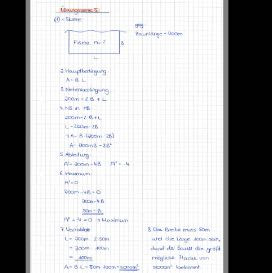 1. Skizze
geg:
Zaunlänge = 200m
Fläche
B
L
2. Hauptbedingung
A = B · L
3. Nebenbedingung
200m = 2·B + L
4. NB in HB
200m = 2·B + L
L = 200m - 2B
A = B · (200m - 2B)
A = 200mB - 2B²
5. Ableitung
A' = 200m - 4B A'' = -4
6. Maximum
A' = 0
200m - 4B = 0
200m = 4B
50m = B
A'' = -4 < 0 → Maximum
7. Variable
L = 200m - 2·50m
= 200m - 100m
= 100m
8. Die Breite muss 50m
und die Länge 100m sein,
damit die Fläche die größt
mögliche Fläche von